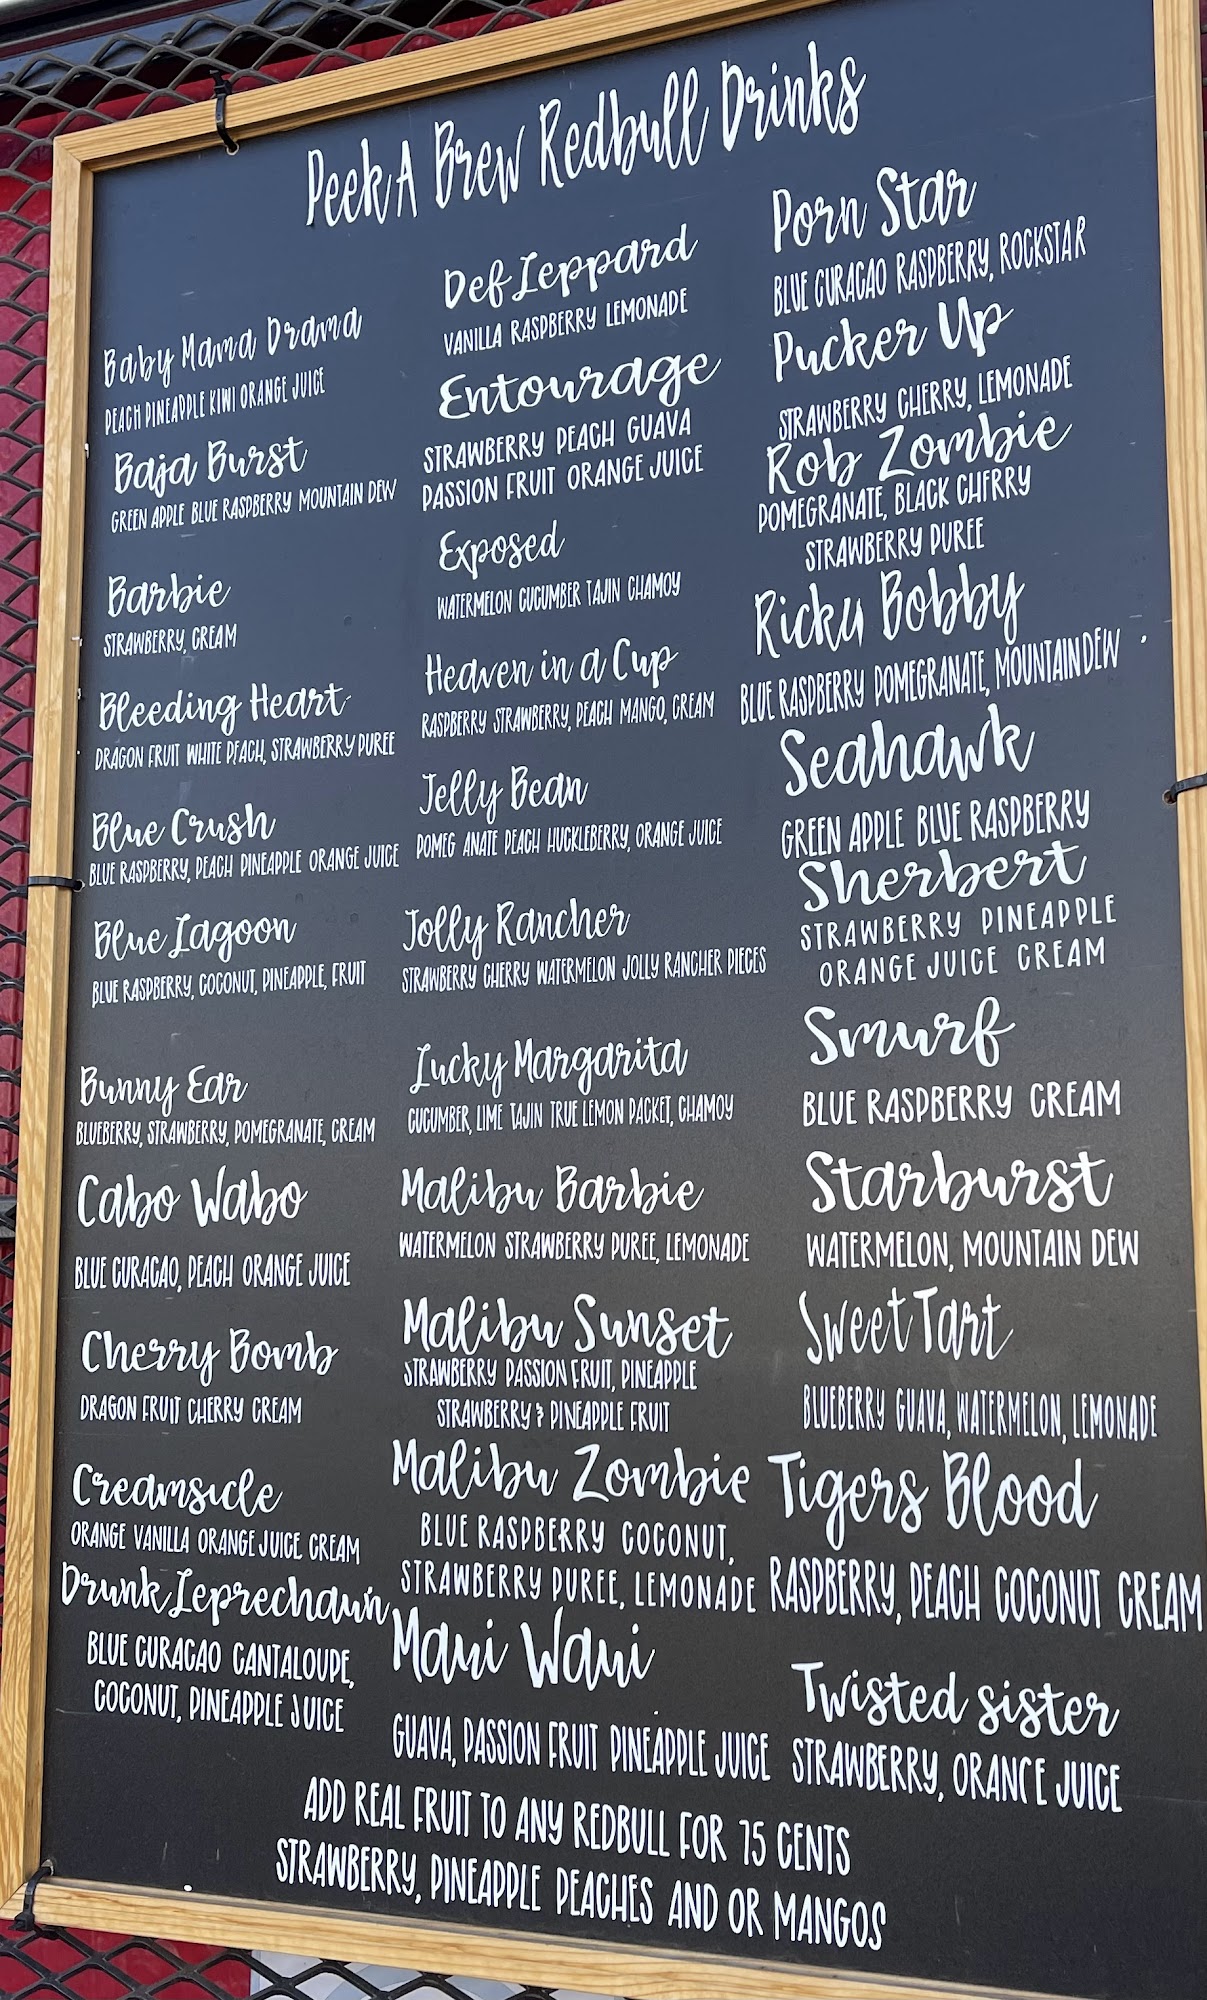 Peek A Brew Redbull Drinks
Baby Mama Drama
PEACH PINEAPPLE KIWI ORANGE JUICE
Baja Burst
GREEN APPLE BLUE RASPBERRY MOUNTAIN DEW
Barbie
STRAWBERRY, CREAM
Bleeding Heart
DRAGON FRUIT WHITE PEACH, STRAWBERRY PUREE
Blue Crush
BLUE RASPBERRY, PEACH PINEAPPLE ORANGE JUICE
Blue Lagoon
BLUE RASPBERRY, COCONUT, PINEAPPLE, FRUIT
Bunny Ear
BLUEBERRY, STRAWBERRY, POMEGRANATE, CREAM
Cabo Wabo
BLUE CURACAO, PEACH ORANGE JUICE
Cherry Bomb
DRAGON FRUIT CHERRY CREAM
Creamsicle
ORANGE VANILLA ORANGE JUICE CREAM
Drunk Leprechaun
BLUE CURACAO CANTALOUPE,
COCONUT, PINEAPPLE JUICE
Def Leppard
VANILLA RASPBERRY LEMONADE
Entourage
STRAWBERRY PEACH GUAVA
PASSION FRUIT ORANGE JUICE
Exposed
WATERMELON CUCUMBER TAJIN CHAMOY
Heaven in a Cup
RASPBERRY STRAWBERRY, PEACH MANGO, CREAM
Jelly Bean
POMEG ANATE PEACH HUCKLEBERRY, ORANGE JUICE
Jolly Rancher
STRAWBERRY CHERRY WATERMELON JOLLY RANCHER PIECES
Lucky Margarita
CUCUMBER, LIME TAJIN TRUE LEMON PACKET, CHAMOY
Malibu Barbie
WATERMELON STRAWBERRY PUREE, LEMONADE
Malibu Sunset
STRAWBERRY PASSION FRUIT, PINEAPPLE
STRAWBERRY & PINEAPPLE FRUIT
Malibu Zombie
BLUE RASPBERRY COCONUT,
STRAWBERRY PUREE, LEMONADE
Maui Waui
GUAVA, PASSION FRUIT PINEAPPLE JUICE
Porn Star
BLUE CURACAO RASPBERRY, ROCKSTAR
Pucker Up
STRAWBERRY CHERRY, LEMONADE
Rob Zombie
POMEGRANATE, BLACK CHERRY
STRAWBERRY PUREE
Ricky Bobby
BLUE RASPBERRY POMEGRANATE, MOUNTAIN DEW
Seahawk
GREEN APPLE BLUE RASPBERRY
Sherbert
STRAWBERRY PINEAPPLE
ORANGE JUICE CREAM
Smurf
BLUE RASPBERRY CREAM
Starburst
WATERMELON, MOUNTAIN DEW
Sweet Tart
BLUEBERRY GUAVA, WATERMELON, LEMONADE
Tigers Blood
RASPBERRY, PEACH COCONUT CREAM
Twisted sister
STRAWBERRY, ORANGE JUICE
ADD REAL FRUIT TO ANY REDBULL FOR 75 CENTS
STRAWBERRY, PINEAPPLE PEACHES AND OR MANGOS